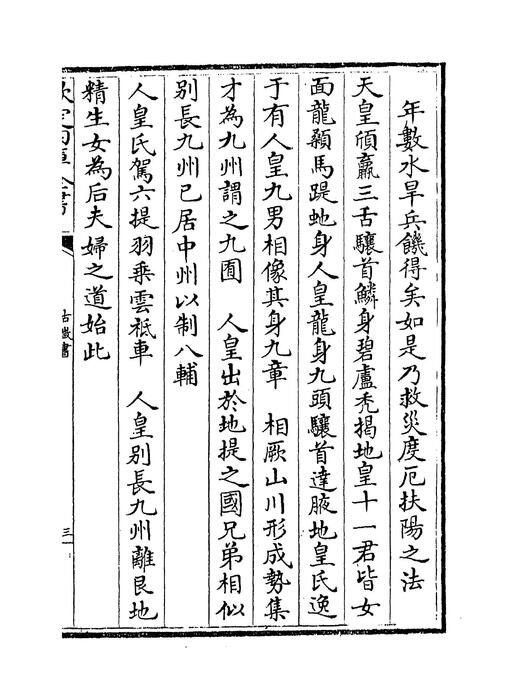 年數水旱兵饑得矣如是乃救災度厄扶陽之法
天皇頎羸三舌驤首鱗身碧盧禿揭地皇十一君皆女
面龍顙馬踶虵身人皇龍身九頭驤首達腋地皇氏逸
于有人皇九男相像其身九章　相厥山川形成勢集
才為九州謂之九囿　人皇出於地提之國兄弟相似
別長九州已居中州以制八輔
人皇氏駕六提羽乘雲祗車　人皇別長九州離艮地
精生女為后夫婦之道始此
欽定四庫全書
古微書
三